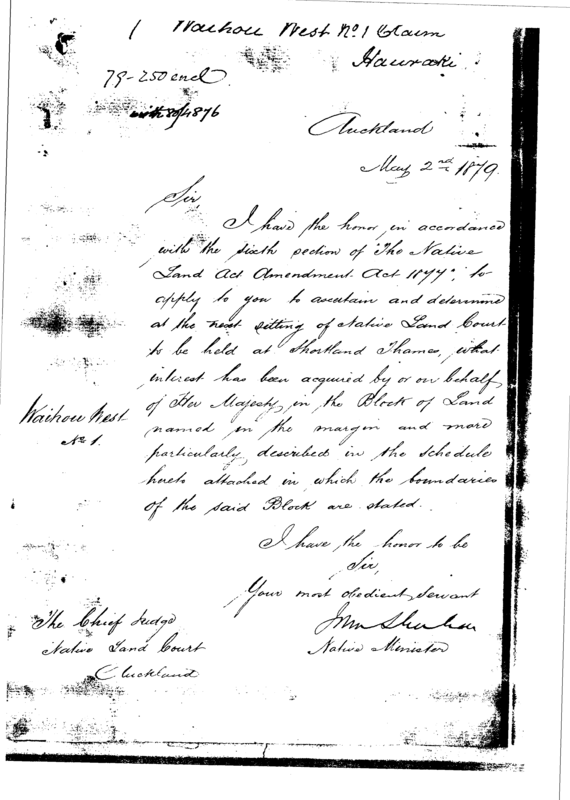 1 Waihou West No. 1 Claim
Hauraki
79-250 encl
with 80/4876
Auckland
May 2nd 1879.
Sir,
I have the honor, in accordance
with the sixth section of "The Native
Land Act Amendment Act 1877", to
apply to you to ascertain and determine
at the next sitting of Native Land Court
to be held at Shortland Thames, what
interest has been acquired by or on behalf
of Her Majesty in the Block of Land
named in the margin and more
particularly described in the schedule
hereto attached in which the boundaries
of the said Block are stated.
Waihou West
No 1.
I have the honor to be
Sir,
Your most obedient servant
Native Minister
The Chief Judge
Native Land Court
Auckland